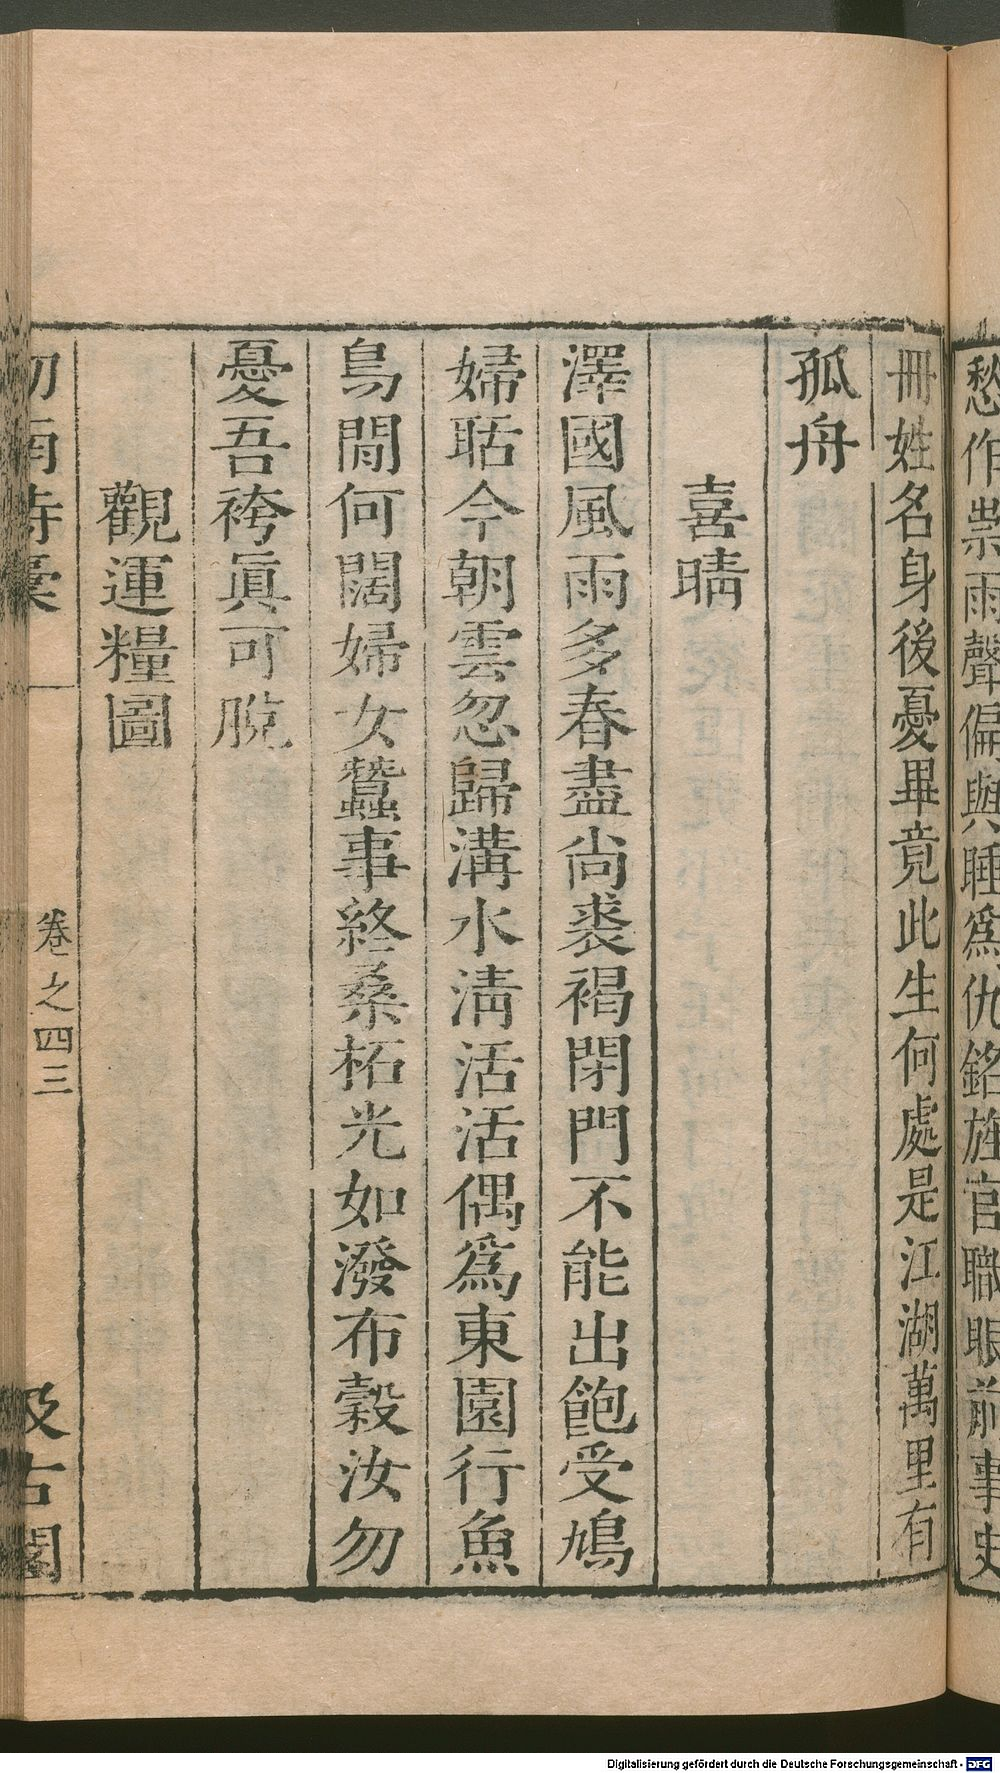 愁作祟雨聲偏與睡爲仇銘旌官職眼前事史
冊姓名身後憂畢竟此生何處是江湖萬里有
孤舟
喜晴
澤國風雨多春盡尚裘褐閉門不能出飽受鳩
婦聒今朝雲忽歸溝水淸活活偶爲東園行魚
鳥閒何闊婦女蠶事終桑柘光如潑布穀汝勿
憂吾袴眞可脫
觀運糧圖
劒南詩稾
卷之四三
汲古閣
Digitalisierung gefördert durch die Deutsche Forschungsgemeinschaft - DFG